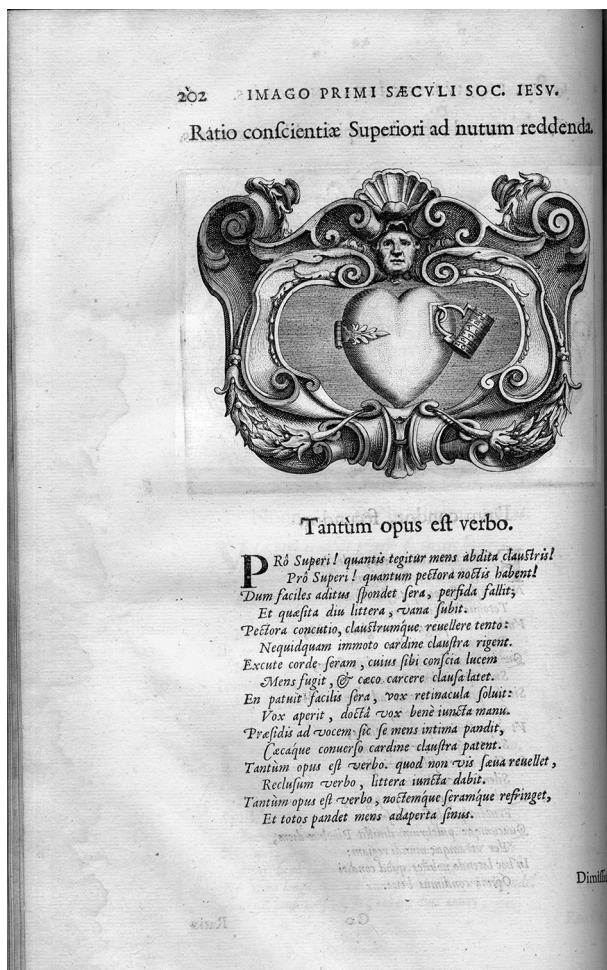 202 IMAGO PRIMI SÆCVLI SOC. IESV.
Ratio conſcientiæ Superiori ad nutum reddenda.
Tantùm opus eſt verbo.
PRô Superi! quantis tegitur mens abdita clauſtris!
Prô Superi! quantum pectora noctis habent!
Dum faciles aditus ſpondet ſera, perfida fallit;
Et quæſita diu littera, vana ſubit.
Pectora concutio, clauſtrumq́ue reuellere tento:
Nequidquam immoto cardine clauſtra rigent.
Excute corde ſeram, cuius ſibi conſcia lucem
Mens fugit, & cæco carcere clauſa latet.
En patuit facilis ſera, vox retinacula ſoluit:
Vox aperit, doctâ vox benè iuncta manu.
Præſidis ad vocem ſic ſe mens intima pandit,
Cæcaque conuerſo cardine clauſtra patent.
Tantùm opus eſt verbo. quod non vis ſæua reuellet,
Recluſum verbo, littera iuncta dabit.
Tantùm opus eſt verbo, noctemq́ue ſeramq́ue refringet,
Et totos pandet mens adaperta ſinus.